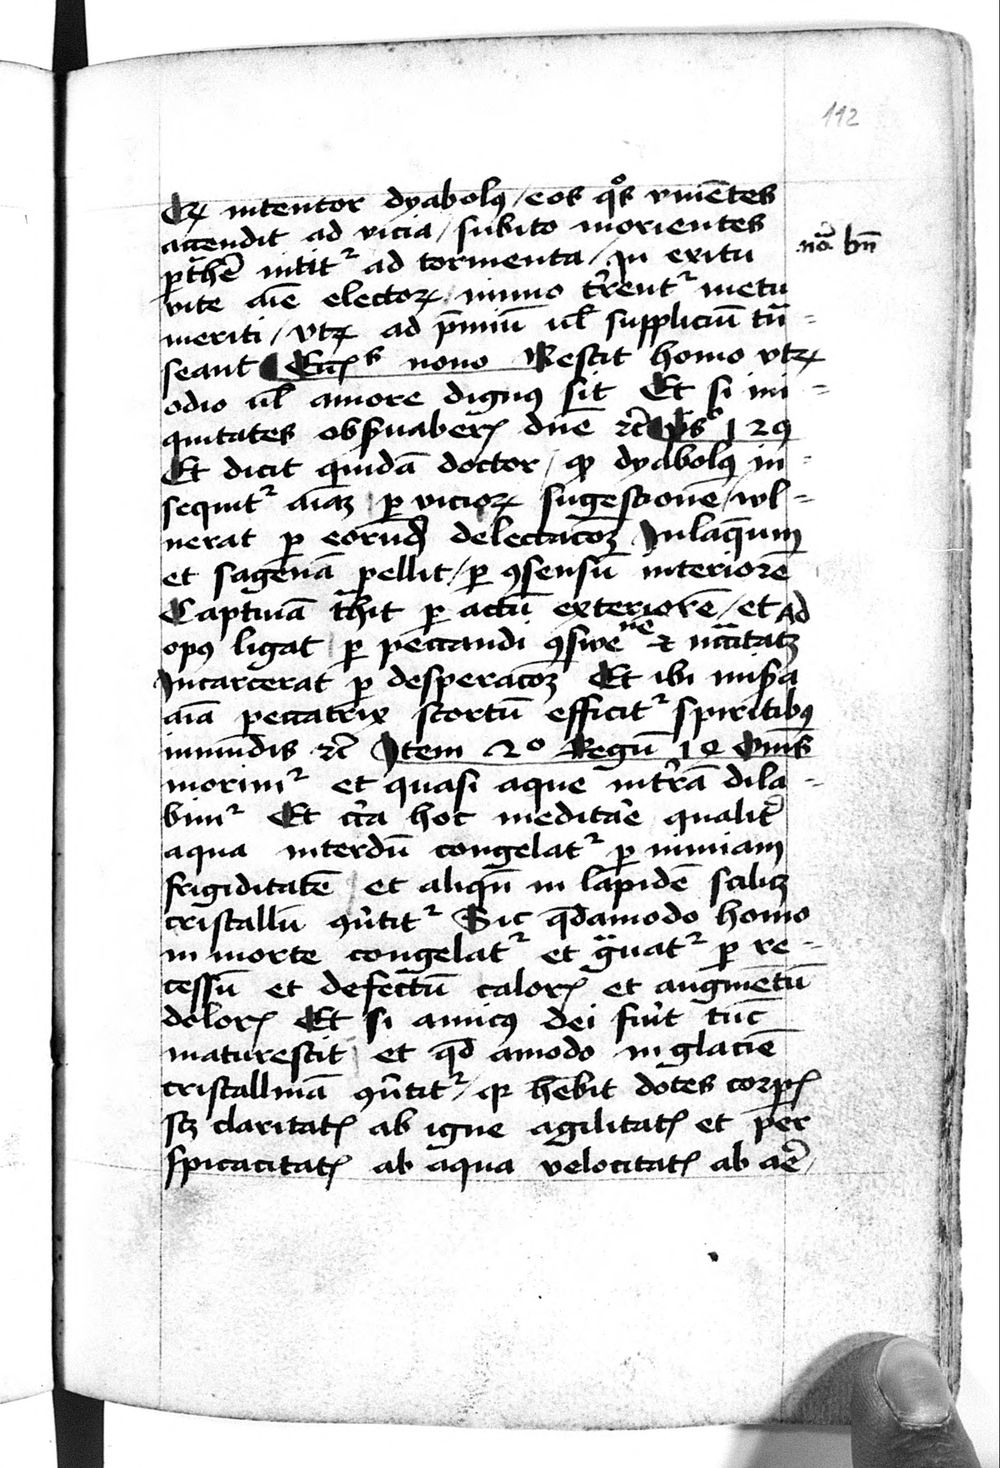 112
Qꝛ intentor dyabolꝯ / eos qͦs viuētes
accendit ad vicia / subito morientes
ꝑtͣhe᷑ intit᷑ ad tormenta / In exitu
vite aīe electoꝝ nimio tr᷑rent᷑ metu
nōͣ bn̄
meriti / vtꝝ ad p̄miū ul̄ suppliciū tū=
seant Eccs nono Nescit homo vtꝝ
odio ul̄ amore dignꝯ sit Et si ini=
quitates obs̄uaueris dn̄e ꝛc̄ ps 129
Et dicit quidā doctor / ꝙ dyabolꝯ in=
sequit᷑ aīaꝫ ꝑ vicioꝝ sugestionē / wl=
nerat ꝑ eorūd delectacoꝫ Inlaqueum
et sagenā pellit / ꝑ ꝯsensū interiorē
Captiuā tͣhit ꝑ actū exteriorē / et ad
opꝯ ligat ꝑ peccandi ꝯswenē ⁊ nc̄citatꝫ
Incarcerat ꝑ desperacoꝫ Et ibi mis̄a
aīa peccatrix scortū efficit᷑ spiritibꝯ
inmūdis ꝛc̄ Item 2º Regū 14 Om̄s
morim᷑ et quasi aque in tr᷑rā dila=
bim᷑ Et cir᷑a hoc meditare qualit᷑
aqua interdū congelat᷑ ꝑ nimiam
frigiditatē et aliqn̄ in lapidē scilicꝫ
cristallū ꝯu᷑tit᷑ Sic qd̄amodo homo
in morte congelat᷑ et gͣuat᷑ ꝑ re=
cessū et defectū caloris et augmētū
doloris Et si amicꝯ dei fu᷑it tūc
maturescit et qd̄ amodo in glaciē
cristallinā ꝯu᷑tit᷑ / qꝛ hēbit dotes corꝑis
scꝫ claritatē ab igne agilitatē et per
spicacitatē ab aqua velocitatē ab aere᷑ /